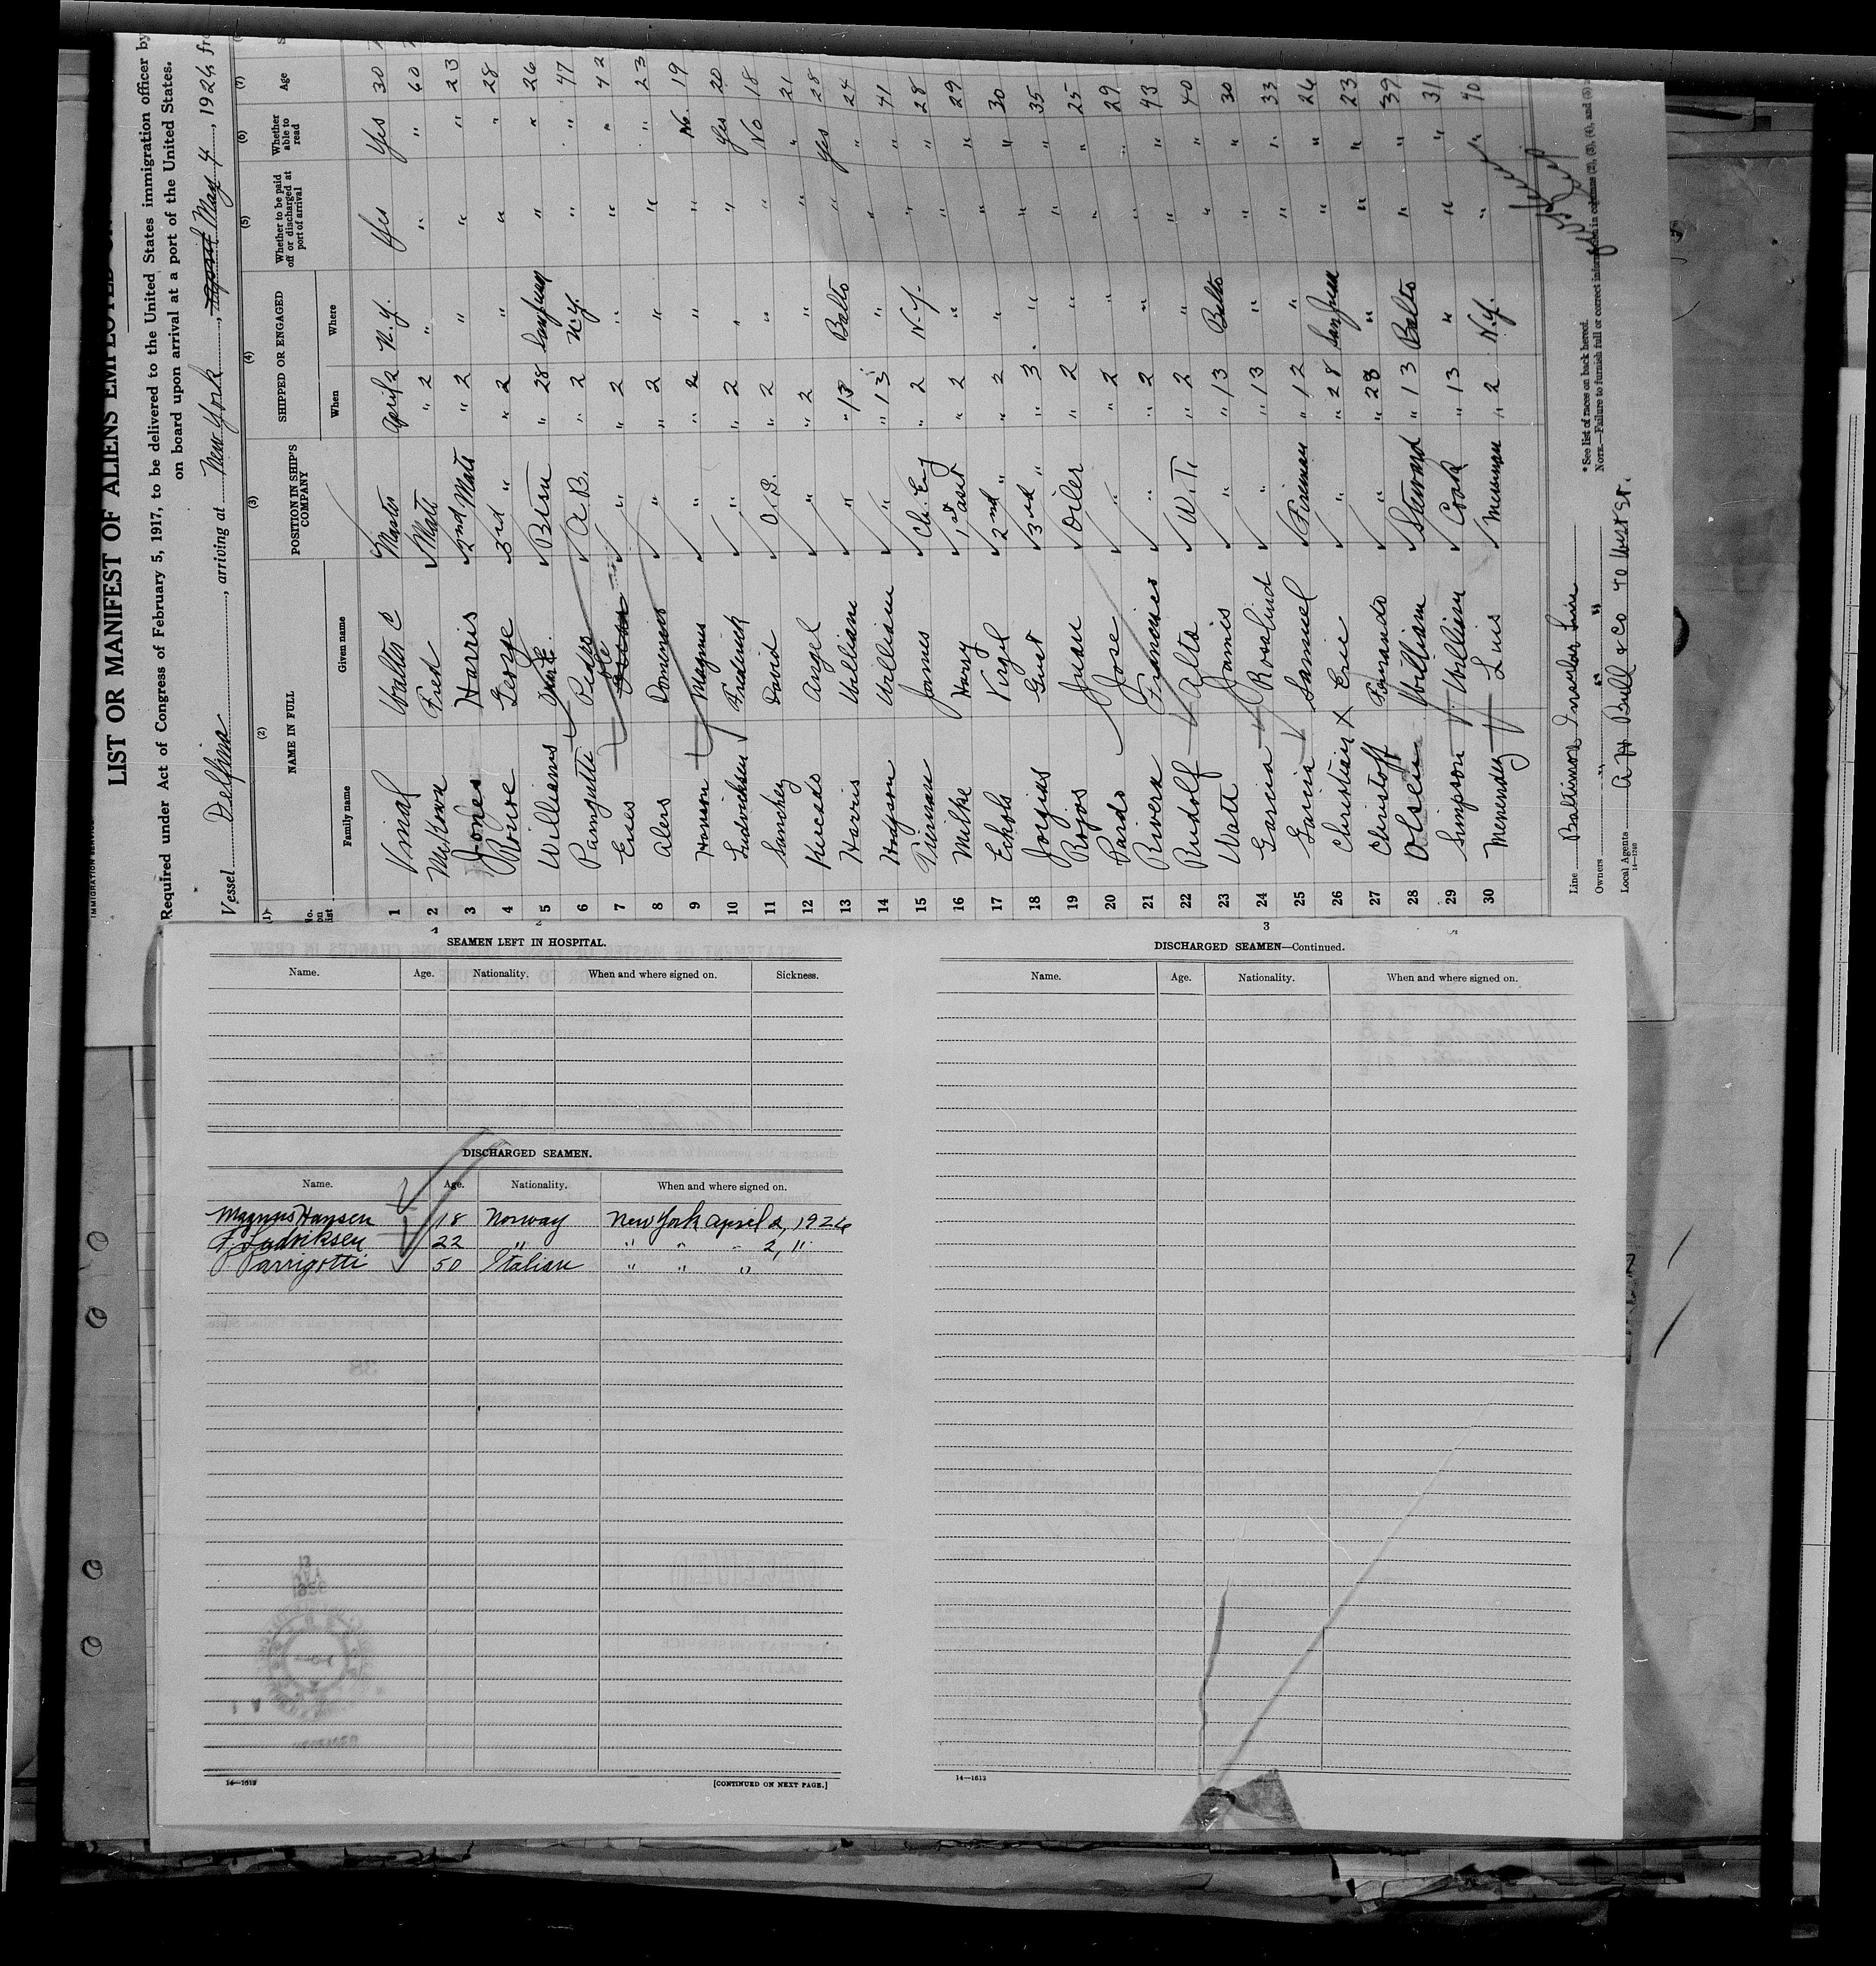 IMMIGRATION SERVICE
LIST OR MANIFEST OF ALIENS EMPLOYED ON
Required under Act of Congress of February 5, 1917, to be delivered to the United States immigration officer by
on board upon arrival at a port of the United States.
Vessel Delfina, arriving at New York, April May 4, 1926, fro
(1) (2) (3) (4) (5) (6) (7)
No. on list NAME IN FULL POSITION IN SHIP'S COMPANY SHIPPED OR ENGAGED Whether to be paid off or discharged at port of arrival Whether able to read Age
Family name Given name When Where
1 Walter C Master April 2 N.Y. Yes Yes 30
2 Fred Mate " 2 " " " 60
3 Jones Harris 2nd Mate " 2 " " " 23
4 Rouse George 3rd " " 2 " " " 28
5 Williams Bosn " 28 " " 26
6 Pedro A.B. " 2 N.Y. " " 47
7 " " 2 " " " 42
8 Alers Domingo " " 2 " " " 23
9 Hanson Magnus " " 2 " " No. 19
10 Ludvicksen Frederick " " 2 " " Yes 20
11 Sanchez David O.S. " 2 " " No 18
12 Angel " " 2 " " " 21
13 Harris William " " 13 Balto " Yes 28
14 Hodgson William " " 13 " " " 24
15 James Ch. Eng " 2 N.Y. " " 28
16 Milke Harry 1st asst " 2 " " " 29
17 Echols Virgil 2nd " " 2 " " " 30
18 Gust 3rd " " 3 " " " 35
19 Rojos Juan Oiler " 2 " " " 25
20 Pardo Jose " " 2 " " " 29
21 Rivera Francisco " " 2 " " " 43
22 Rudolf Alto W.T. " 2 " " " 40
23 Watt James " " 13 Balto " " 30
24 Garcia Rosalind " " 13 " " " 33
25 Garcia Samuel Fireman " 12 " " " 26
26 Christian Eric " " 28 San Juan " " 23
27 Christoff Fernando " " 28 " " " 39
28 Olsen William Steward " 13 Balto " " 31
29 Simpson William Cook " 13 " " " 40
30 Menendez Luis Messman " 2 N.Y. " "
Line Baltimore Insular Line
Owners " " "
Local Agents A H Bull & Co 40 West St.
14—1240
* See list of races on back hereof.
NOTE.—Failure to furnish full or correct information in columns (2), (3), (4), and (5)
2
SEAMEN LEFT IN HOSPITAL.
Name. Age. Nationality. When and where signed on. Sickness.
DISCHARGED SEAMEN.
Name. Age. Nationality. When and where signed on.
Magnus Hansen 18 Norway New York April 2, 1926
F. Ludviksen 22 " " " " 2, "
P. Parrigotti 50 Italian " " "
14—1613
[CONTINUED ON NEXT PAGE.]
3
DISCHARGED SEAMEN—Continued.
Name. Age. Nationality. When and where signed on.
14—1613